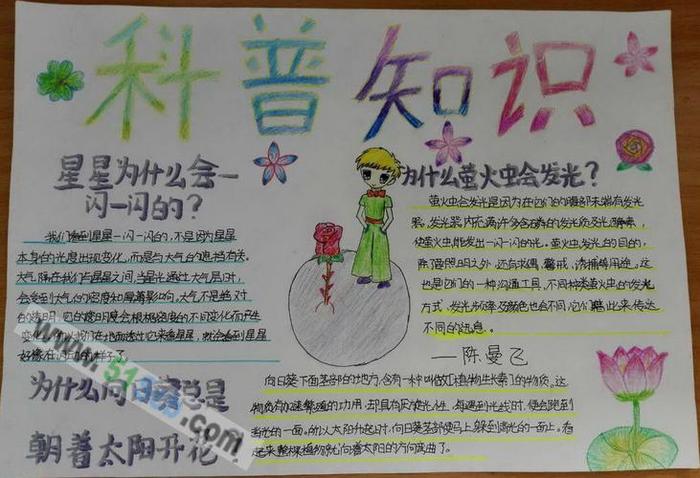 科普知识
星星为什么会一
闪一闪的？
我们看到星星一闪一闪的，不是因为星星
本身的光度出现变化，而是与大气的遮挡有关。
大气隔在我们与星星之间，当星光通过大气层时，
会受到大气的密度和厚薄影响，大气不是绝对
的透明，它的透明度会根据密度的不同变化而产生
变化，所以我们在地面透过它来看星星，就会看到星星
好像在闪动的样子了
为什么萤火虫会发光？
萤火虫会发光是因为在它们的腹部末端有发光
器，发光器内充满许多含磷的发光质及发光酵素，
使萤火虫能发出一闪一闪的光。萤火虫发光的目的，
除了照明之外，还有求偶、警戒、诱捕等用途。这
也是它们的一种沟通工具，不同种类萤火虫的发光
方式、发光频率及颜色也会不同，它们藉此来传达
不同的讯息。
—陈曼飞
为什么向日葵总是
朝着太阳开花？
向日葵下面茎部的地方，含有一种叫做植物生长素的物质。这
物质有加速繁殖的功用，却具有
每遇到光线时，便会跑到
背光的一面。所以太阳升起时，向日葵茎部便马上躲到背光的一面去。看
起来整株植物就向着太阳的方向弯曲了。
www.51
.com